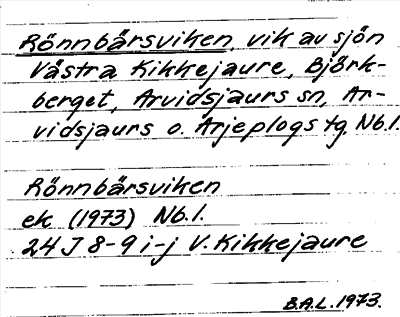 Rönnbärsviken, vik av sjön
Västra Kikkejaure, Björk-
berget, Arvidsjaurs sn, Ar-
vidsjaurs o. Arjeplogs tg. Nb.l.
Rönnbärsviken
ek (1973) Nb.l.
24 J 8-9 i-j V. Kikkejaure
B.A.L. 1973.